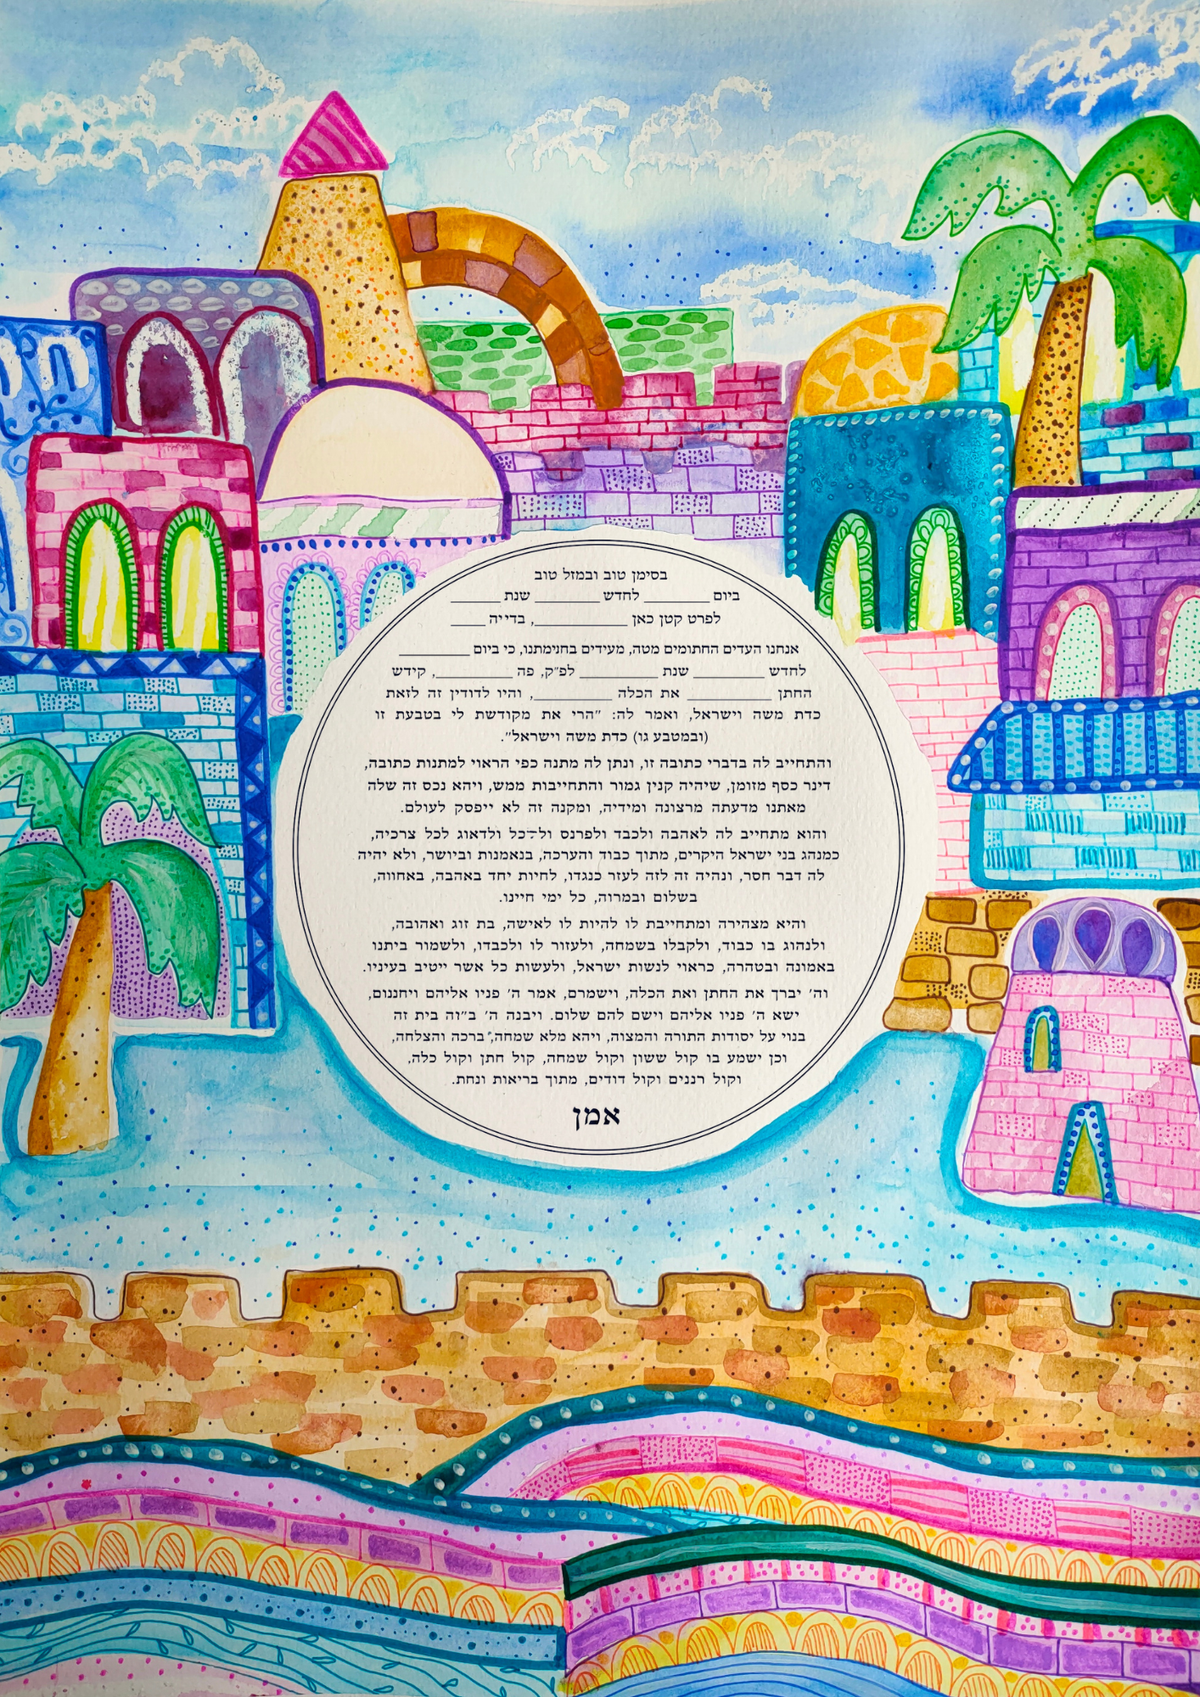 בסימן טוב ובמזל טוב
ביום ________ לחדש ________ שנת ______
לפרט קטן כאן ___________, בדייה ____
אנחנו העדים החתומים מטה, מעידים בחנימתנו, כי ביום _________
לחדש _________ שנת __________ לפ״ק, פה _________, קידש
החתן ____________ את הכלה __________, והיו לדודין זה לזאת
כדת משה וישראל, ואמר לה: ״הרי את מקודשת לי בטבעת זו
(ובמטבע גו) כדת משה וישראל״.
והתחייב לה בדברי כתובה זו, ונתן לה מתנה כפי הראוי למתנות כתובה,
דינר כסף מזומן, שיהיה קנין גמור והתחייבות ממש, ויהא נכס זה שלה
מאתנו מדעתה מרצונה ומידיה, ומקנה זה לא ייפסק לעולם.
והוא מתחייב לה לאהבה ולכבד ולפרנס ולדאוג לכל צרכיה,
כמנהג בני ישראל היקרים, מתוך כבוד והערכה, בנאמנות וביושר, ולא יהיה
לה דבר חסר, ונהיה זה לזה לעזר כנגדו, לחיות יחד באהבה, באחווה,
בשלום ובמרוה, כל ימי חיינו.
והיא מצהירה ומתחייבת לו להיות לו לאישה, בת זוג ואהובה,
ולנהוג בו כבוד, ולקבלו בשמחה, ולעזור לו ולכבדו, ולשמור ביתנו
באמונה ובטהרה, כראוי לנשות ישראל, ולעשות כל אשר ייטיב בעיניו.
וה׳ יברך את החתן ואת הכלה, וישמרם, אמר ה׳ פניו אליהם ויחננום,
ישא ה׳ פניו אליהם וישם להם שלום. ויבנה ה׳ ב״זה בית זה
בנוי על יסודות התורה והמצוה, ויהא מלא שמחה, ברכה והצלחה,
וכן ישמע בו קול ששון וקול שמחה, קול חתן וקול כלה,
וקול רננים וקול דודים, מתוך בריאות ונחת.
אמן